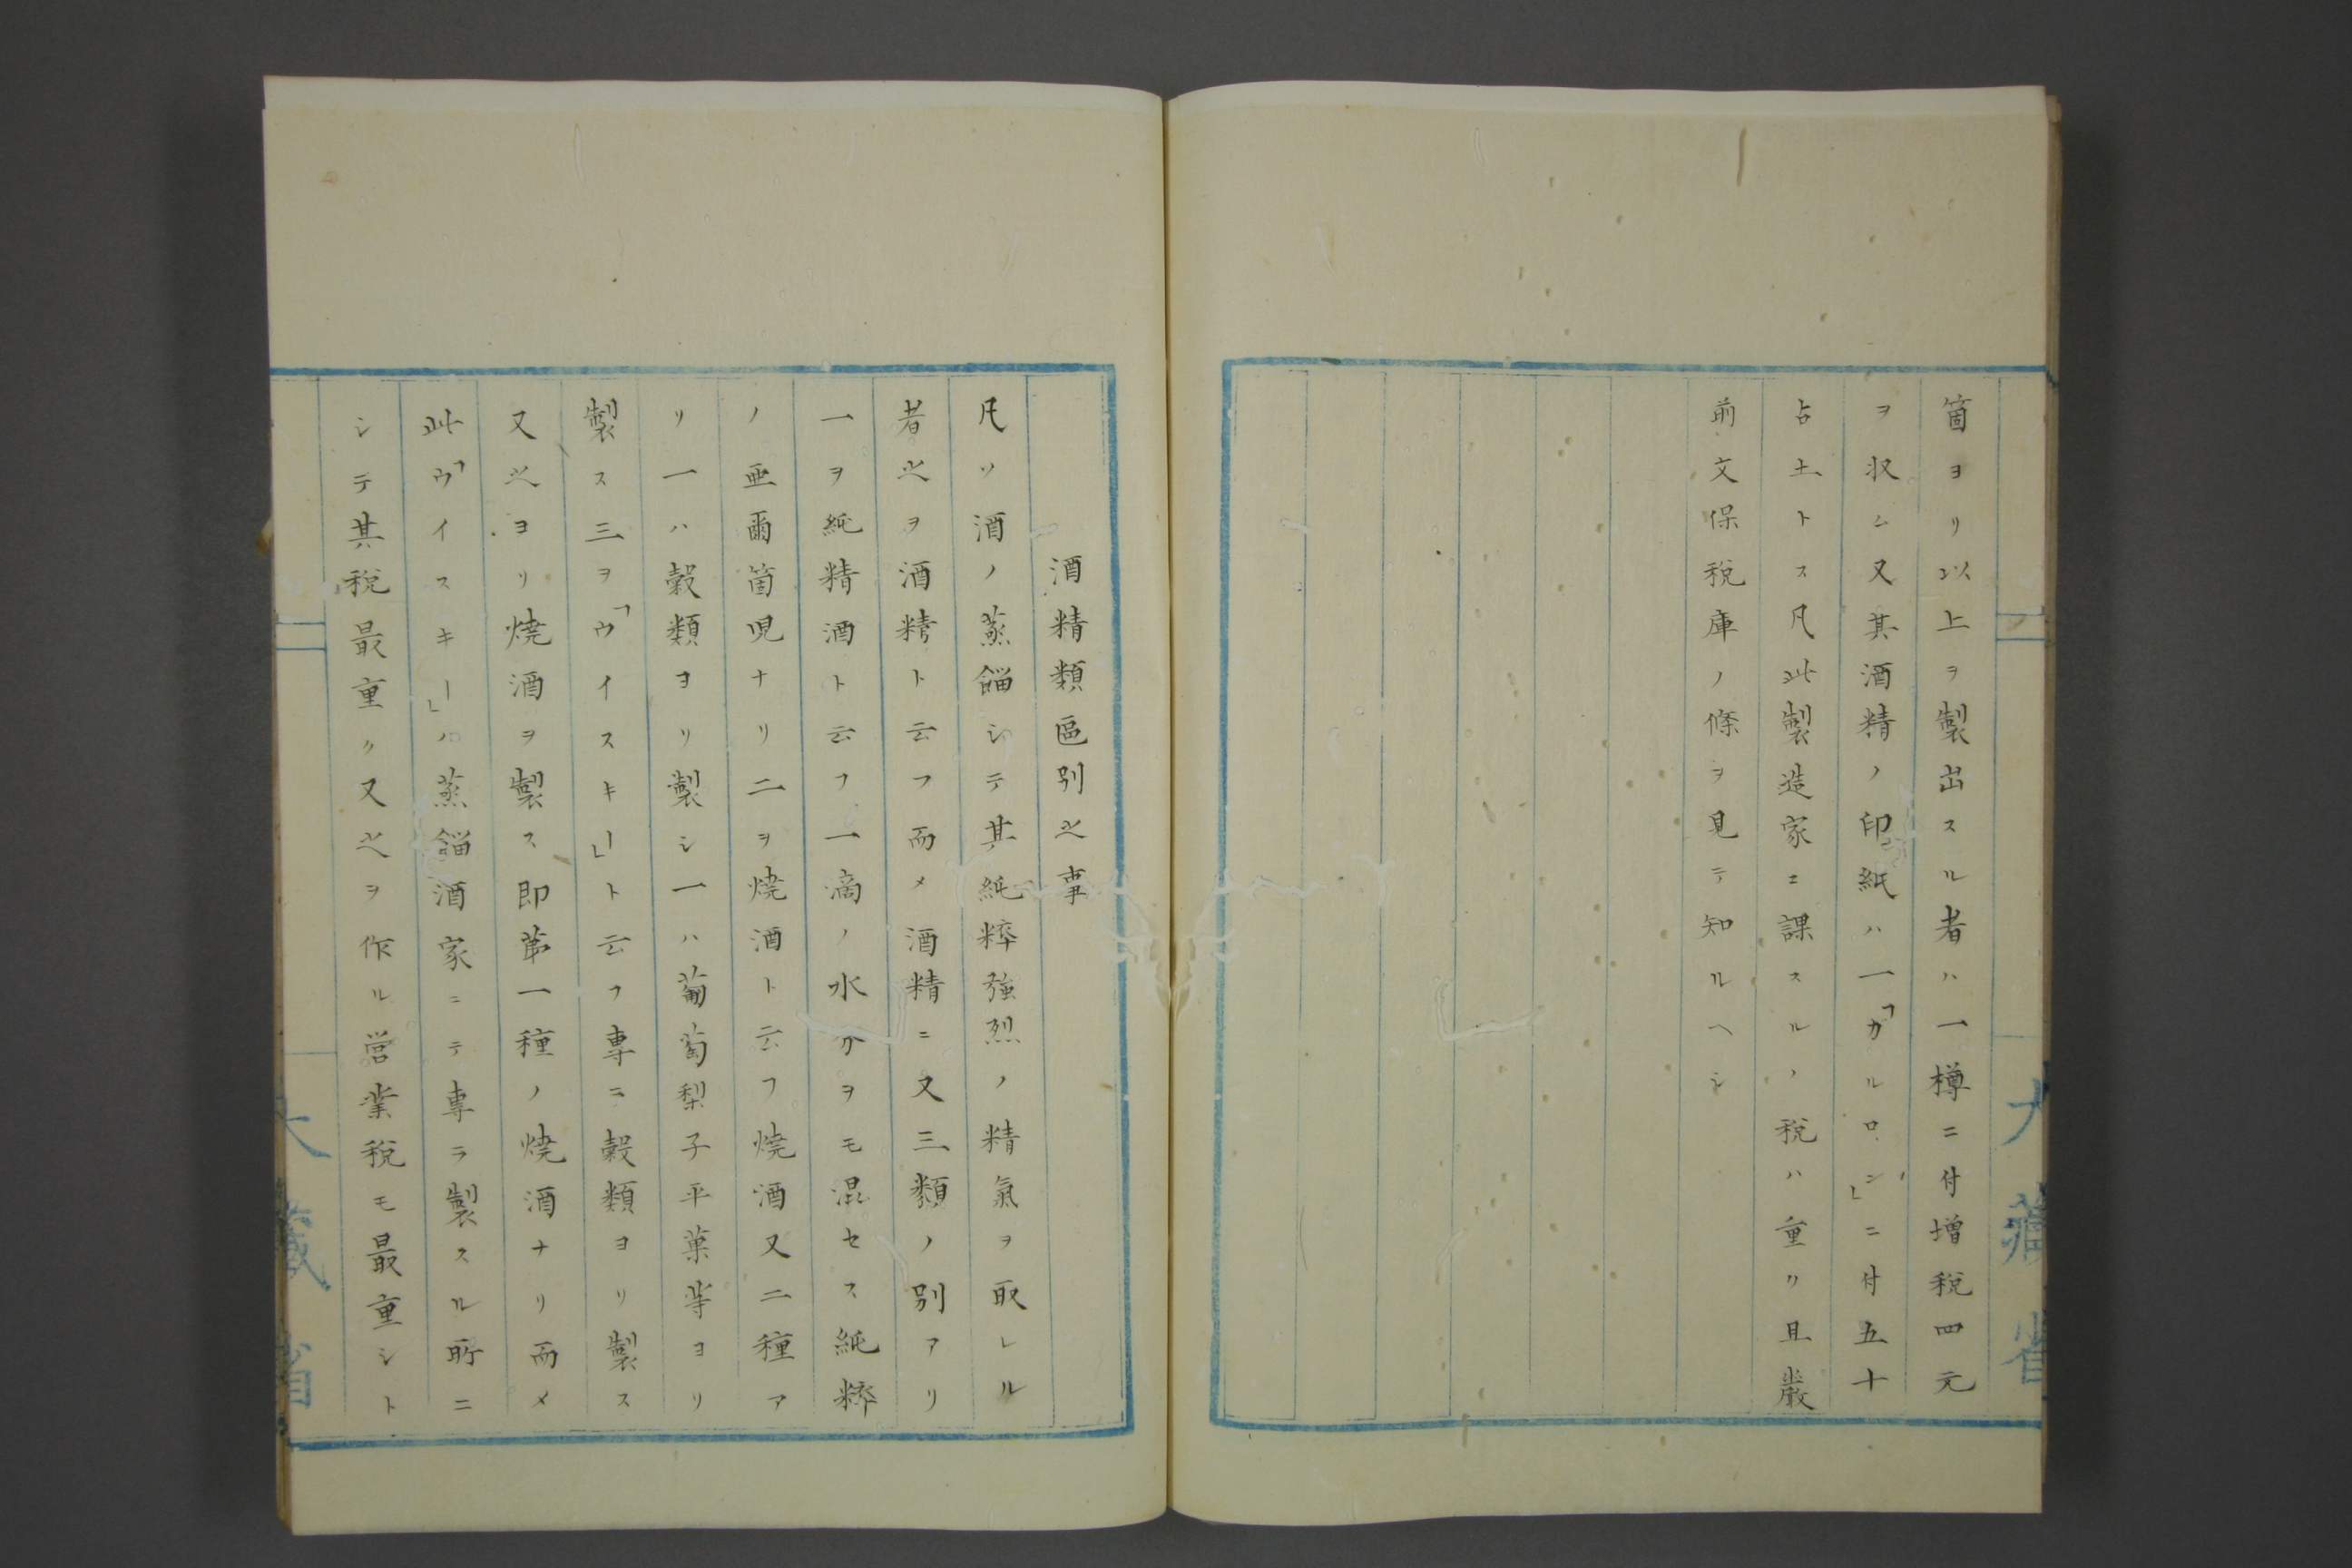 箇ヨリ以上ヲ製出スル者ハ一樽ニ付増税四元
ヲ収ム又其酒精ノ印紙ハ一「ガルロン」ニ付五十
占土トス凡此製造家ニ課スルノ税ハ重ク且嚴
前文保税庫ノ條ヲ見テ知ルヘシ
酒精類區別之事
凡ソ酒ノ蒸餾シテ其純粹強烈ノ精氣ヲ取レル
者之ヲ酒精ト云フ而メ酒精ニ又三類ノ別アリ
一ヲ純精酒ト云フ一滴ノ水分ヲモ混セス純粹
ノ亜爾箇児ナリ二ヲ焼酒ト云フ焼酒又二種ア
リ一ハ穀類ヨリ製シ一ハ葡萄梨子平菓等ヨリ
製ス三ヲ「ウイスキー」ト云フ専ニ穀類ヨリ製ス
又之ヨリ焼酒ヲ製ス即第一種ノ焼酒ナリ而メ
此「ウイスキー」ハ蒸餾酒家ニテ専ラ製スル所ニ
シテ其税最重ク又之ヲ作ル営業税モ最重シト
大藏省
大藏省